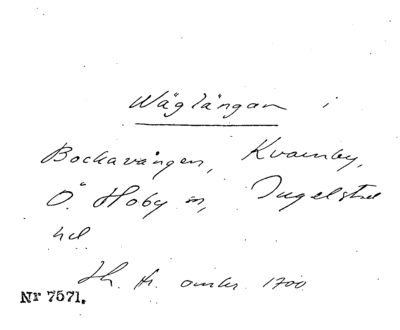 Wäglängan i
Bockavången, Kvarnby,
Ö. Hoby m, Ingelstad
hd
Th. fr. omkr. 1700
Nr 7571.